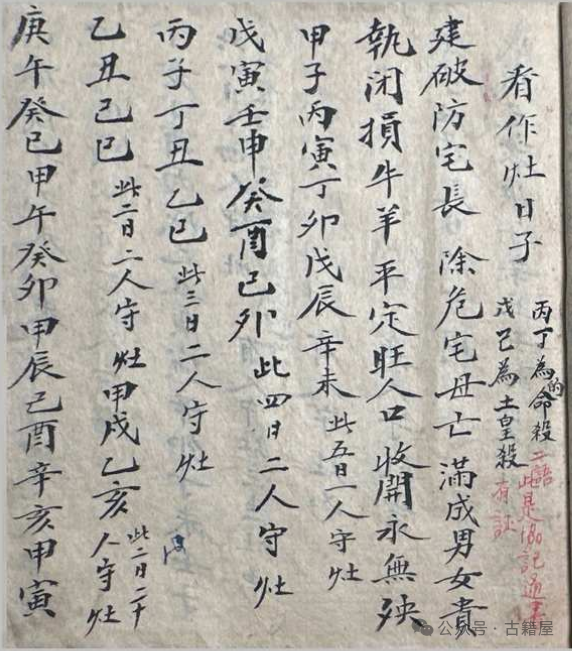 看作灶日子
丙丁為的命殺
戊己為土皇殺
二語
此是
記通書
有証
建破防宅長 除危宅母亡 滿成男女貴
執闭損牛羊 平定旺人口 收開永無殃
甲子丙寅丁卯戊辰辛未 此五日一人守灶
戊寅壬申癸酉己卯 此四日二人守灶
丙子丁丑乙巳 此三日二人守灶
乙丑己巳 此二日二人守灶 甲戌乙亥 此二日二十人守灶
庚午癸巳甲午癸卯甲辰己酉辛亥甲寅
公众号·古籍屋